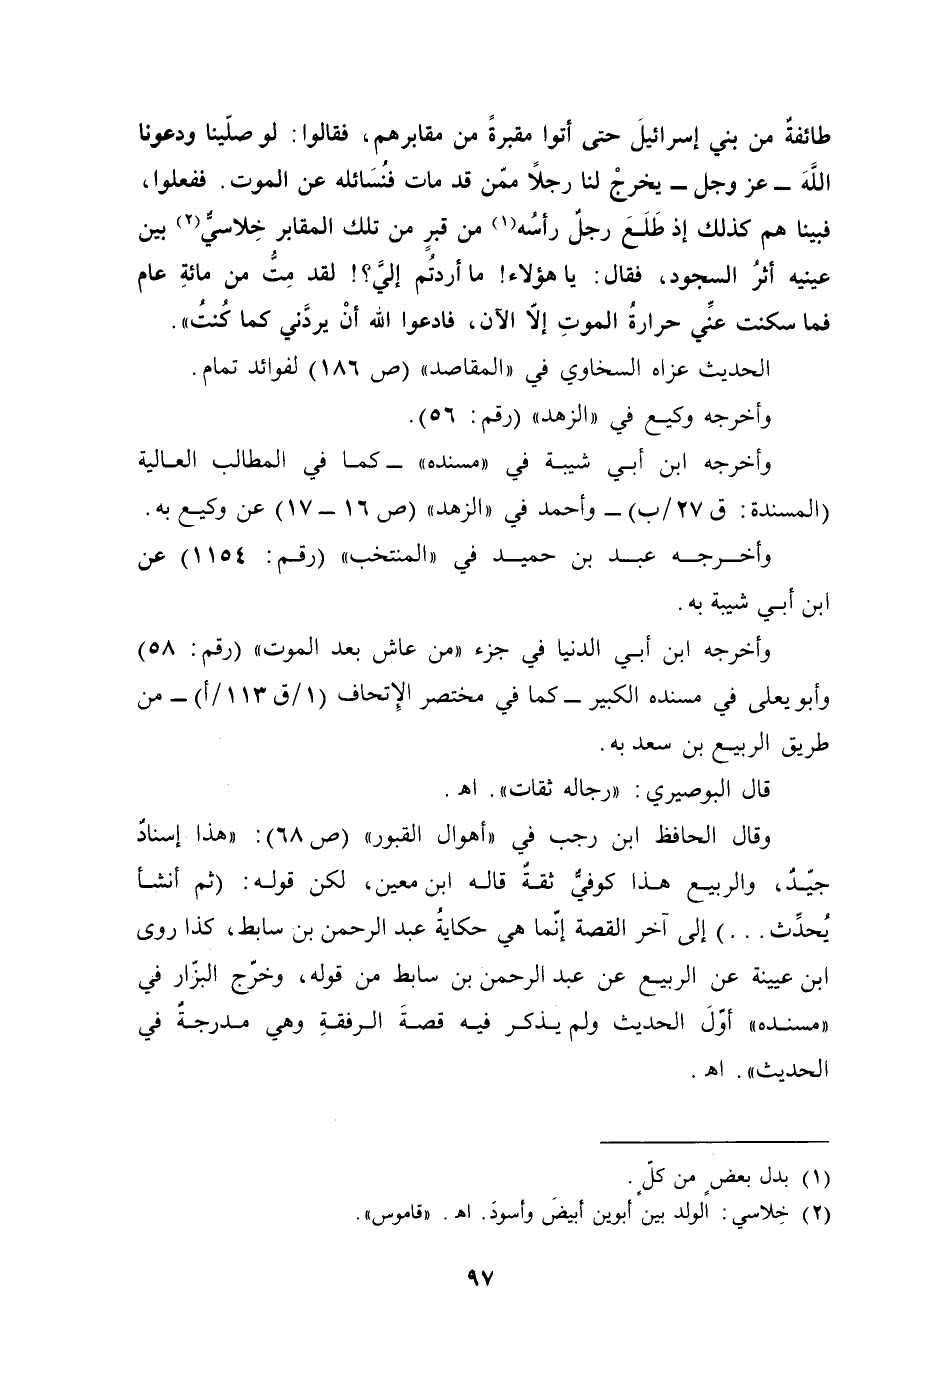 طائفةٌ من بني إسرائيلَ حتى أتوا مقبرةً من مقابرهم، فقالوا: لو صلّينا ودعونا
اللَّهَ ــ عز وجل ــ يخرجْ لنا رجلًا ممّن قد مات فنُسَائله عن الموت. ففعلوا،
فبينا هم كذلك إذ طَلَعَ رجلٌ رأسُه(١) من قبرٍ من تلك المقابر خِلاسيٌّ(٢) بين
عينيه أثرُ السجود، فقال: يا هؤلاء! ما أردتُم إليَّ؟! لقد مِتُّ من مائةِ عام
فما سكنت عنِّي حرارةُ الموتِ إلّا الآن، فادعوا الله أنْ يردَّني كما كُنتُ».
الحديث عزاه السخاوي في «المقاصد» (ص ١٨٦) لفوائد تمام.
وأخرجه وكيع في «الزهد» (رقم: ٥٦).
وأخرجه ابن أبي شيبة في «مسنده» ــ كما في المطالب العالية
(المسندة: ق ٢٧/ب) ــ وأحمد في «الزهد» (ص ١٦ ــ ١٧) عن وكيع به.
وأخرجه عبد بن حميد في «المنتخب» (رقم: ١١٥٤) عن
ابن أبي شيبة به.
وأخرجه ابن أبي الدنيا في جزء «من عاش بعد الموت» (رقم: ٥٨)
وأبو يعلى في مسنده الكبير ــ كما في مختصر الإتحاف (١/ق ١١٣/أ) ــ من
طريق الربيع بن سعد به.
قال البوصيري: «رجاله ثقات». اهـ.
وقال الحافظ ابن رجب في «أهوال القبور» (ص ٦٨): «هذا إسنادٌ
جيّدٌ، والربيع هذا كوفيٌّ ثقةٌ قاله ابن معين، لكن قوله: (ثم أنشأ
يُحدِّث...) إلى آخر القصة إنّما هي حكايةُ عبد الرحمن بن سابط، كذا روى
ابن عيينة عن الربيع عن عبد الرحمن بن سابط من قوله، وخرّج البزّار في
«مسنده» أوّلَ الحديث ولم يذكر فيه قصةَ الرفقةِ وهي مدرجةٌ في
الحديث». اهـ.
(١) بدل بعضٍ من كلٍّ.
(٢) خِلاسي: الولد بين أبوين أبيضَ وأسودَ. اهـ. «قاموس».
٩٧